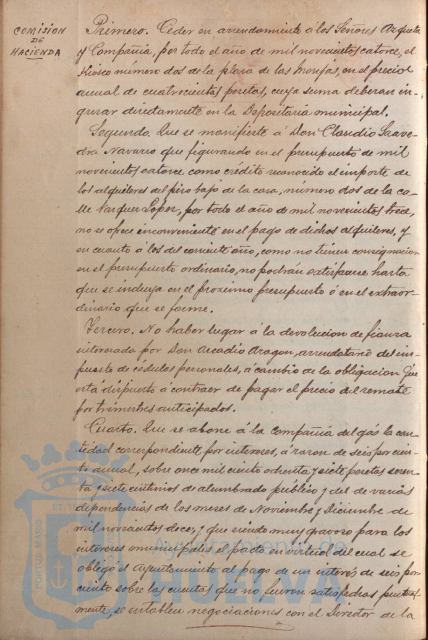 COMISION
DE
HACIENDA
Primero. Ceder en arrendamiento á los Señores Arqueta
y Compañia, por todo el año de mil novecientos catorce, el
Kiosco número dos de la plaza de las Monjas, en el precio
anual de cuatrocientas pesetas, cuya suma deberan in-
gresar directamente en la Depositaria municipal.
Segundo. Que se manifieste á Don Claudio Saave-
dra Navarro que figurando en el presupuesto de mil
novecientos catorce como crédito reconocido el importe de
los alquileres del piso bajo de la casa, número dos de la ca-
lle Vazquez Lopez, por todo el año de mil novecientos trece,
no se ofrece inconveniente en el pago de dichos alquileres, y
en cuanto á los del corriente año, como no tienen consignacion
en el presupuesto ordinario, no podrán satisfacerse hasta
que se incluya en el próximo presupuesto ó en el extraor-
dinario que se forme.
Tercero. No haber lugar á la devolucion de fianza
interesada por Don Arcadio Aragon, arrendatario del im-
puesto de cédulas personales, á cambio de la obligacion que
está dispuesto á contraer de pagar el precio del remate
por trimestres anticipados.
Cuarto. Que se abone á la Compañia del gás la can-
tidad correspondiente por intereses, á razon de seis por cien-
to anual, sobre once mil ciento ochenta y siete pesetas seten-
ta y siete centimos de alumbrado público y del de varias
dependencias de los meses de Noviembre y Diciembre de
mil novecientos doce, y que siendo muy gravoso para los
intereses municipales el pacto en virtud del cual se
obligó el Ayuntamiento al pago de un interés de seis por
ciento sobre las cuentas que no fueran satisfechas puntual-
mente, se entablen negociaciones con el Director de la
Ayuntamiento de
HUELVA
PORTUS MARIS